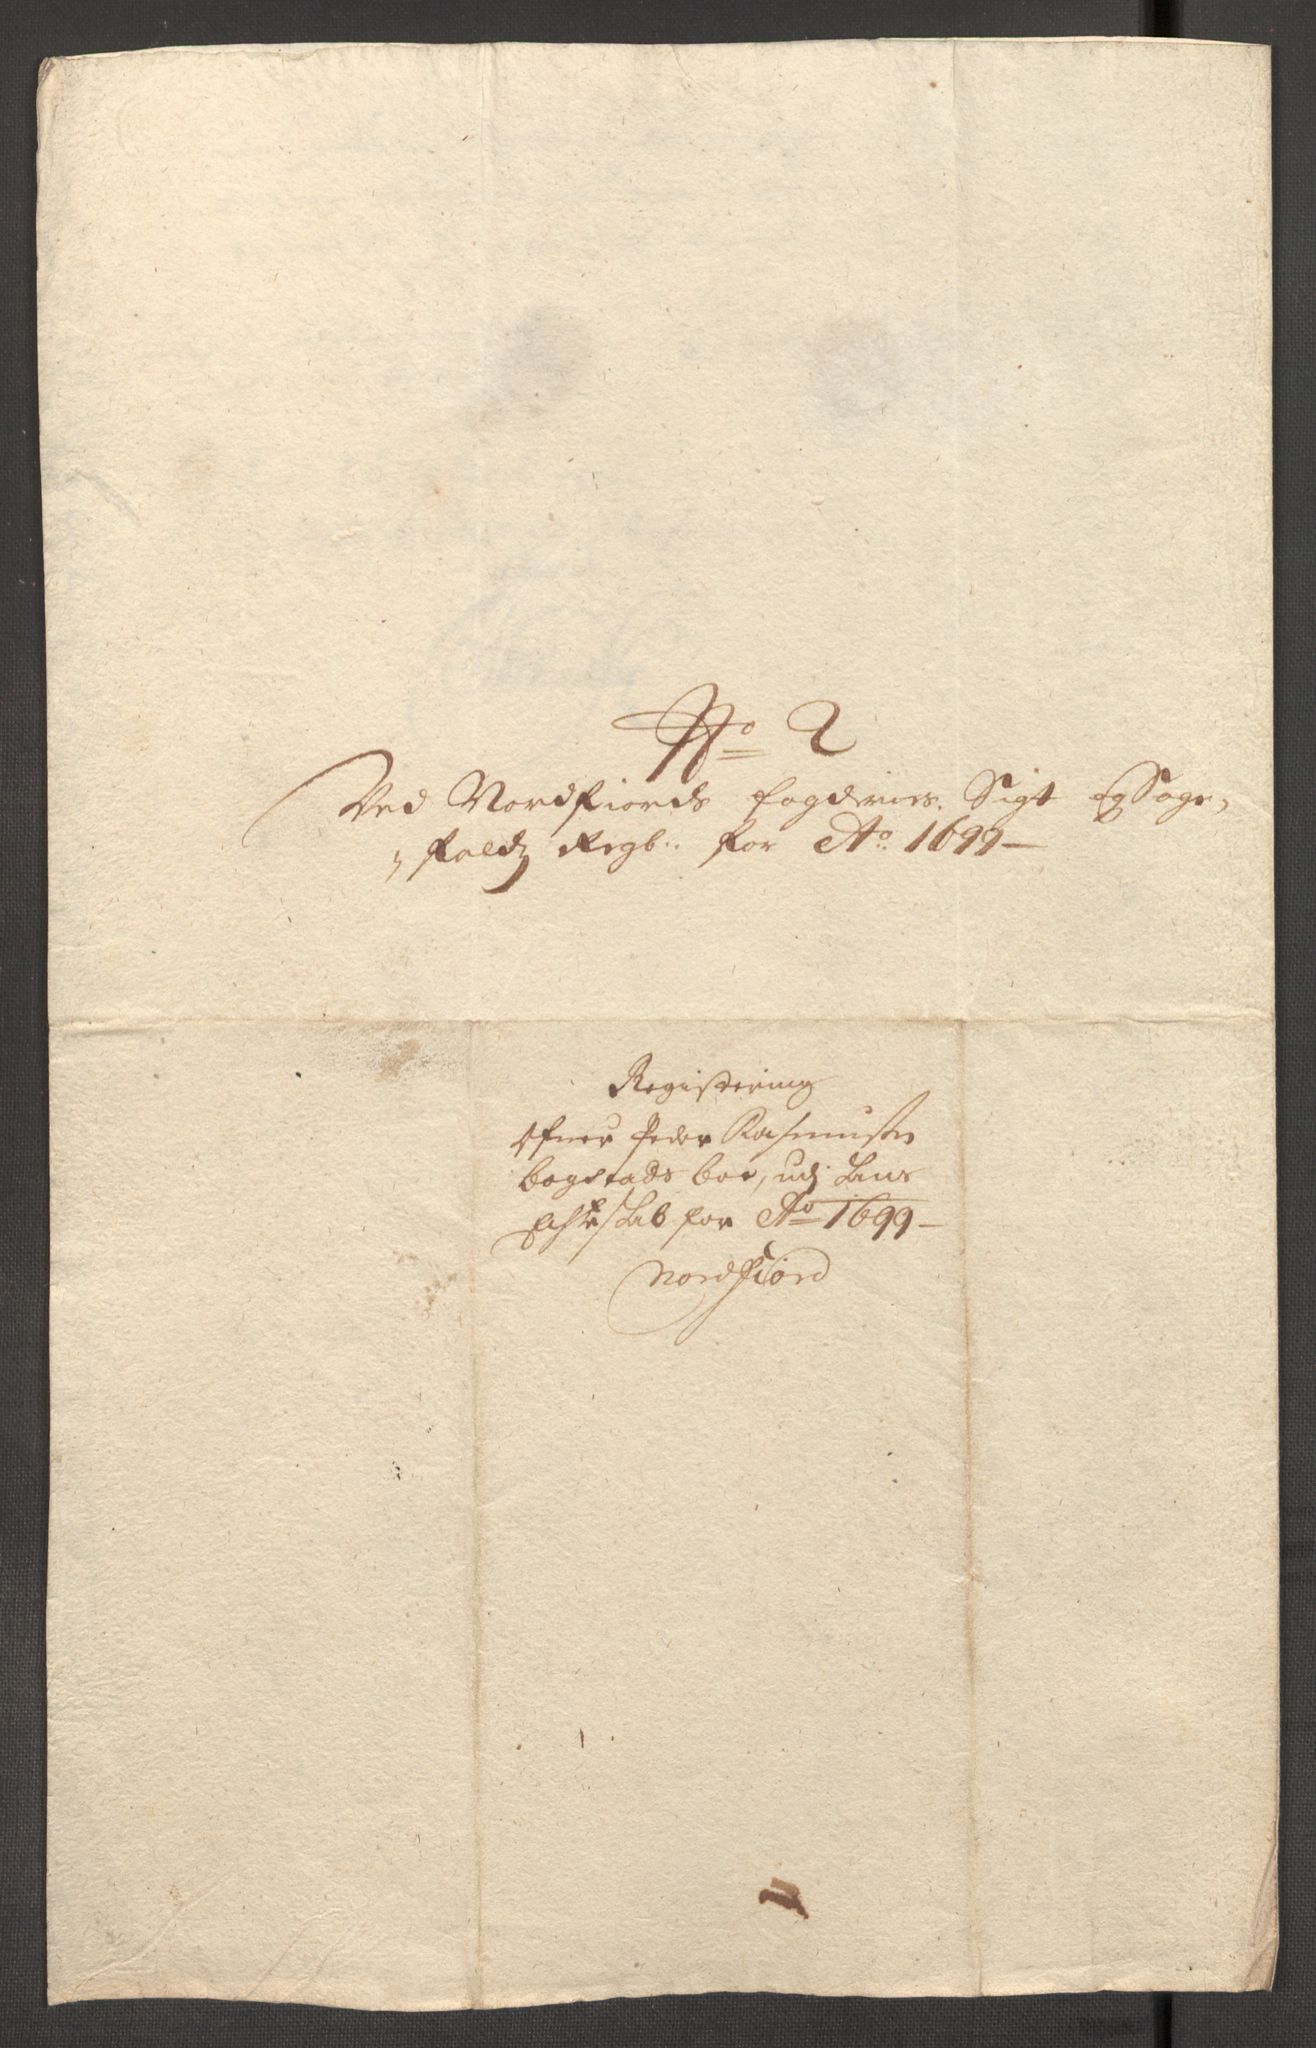 No. 2
Ved Nordfiords fogderies Sigt og Sage,
,falds Regb:. for Ao. 1699
Registering
Ofuer Peder Rasmusen
bogstads boe, udj
for Ao 1699
Nordfiord